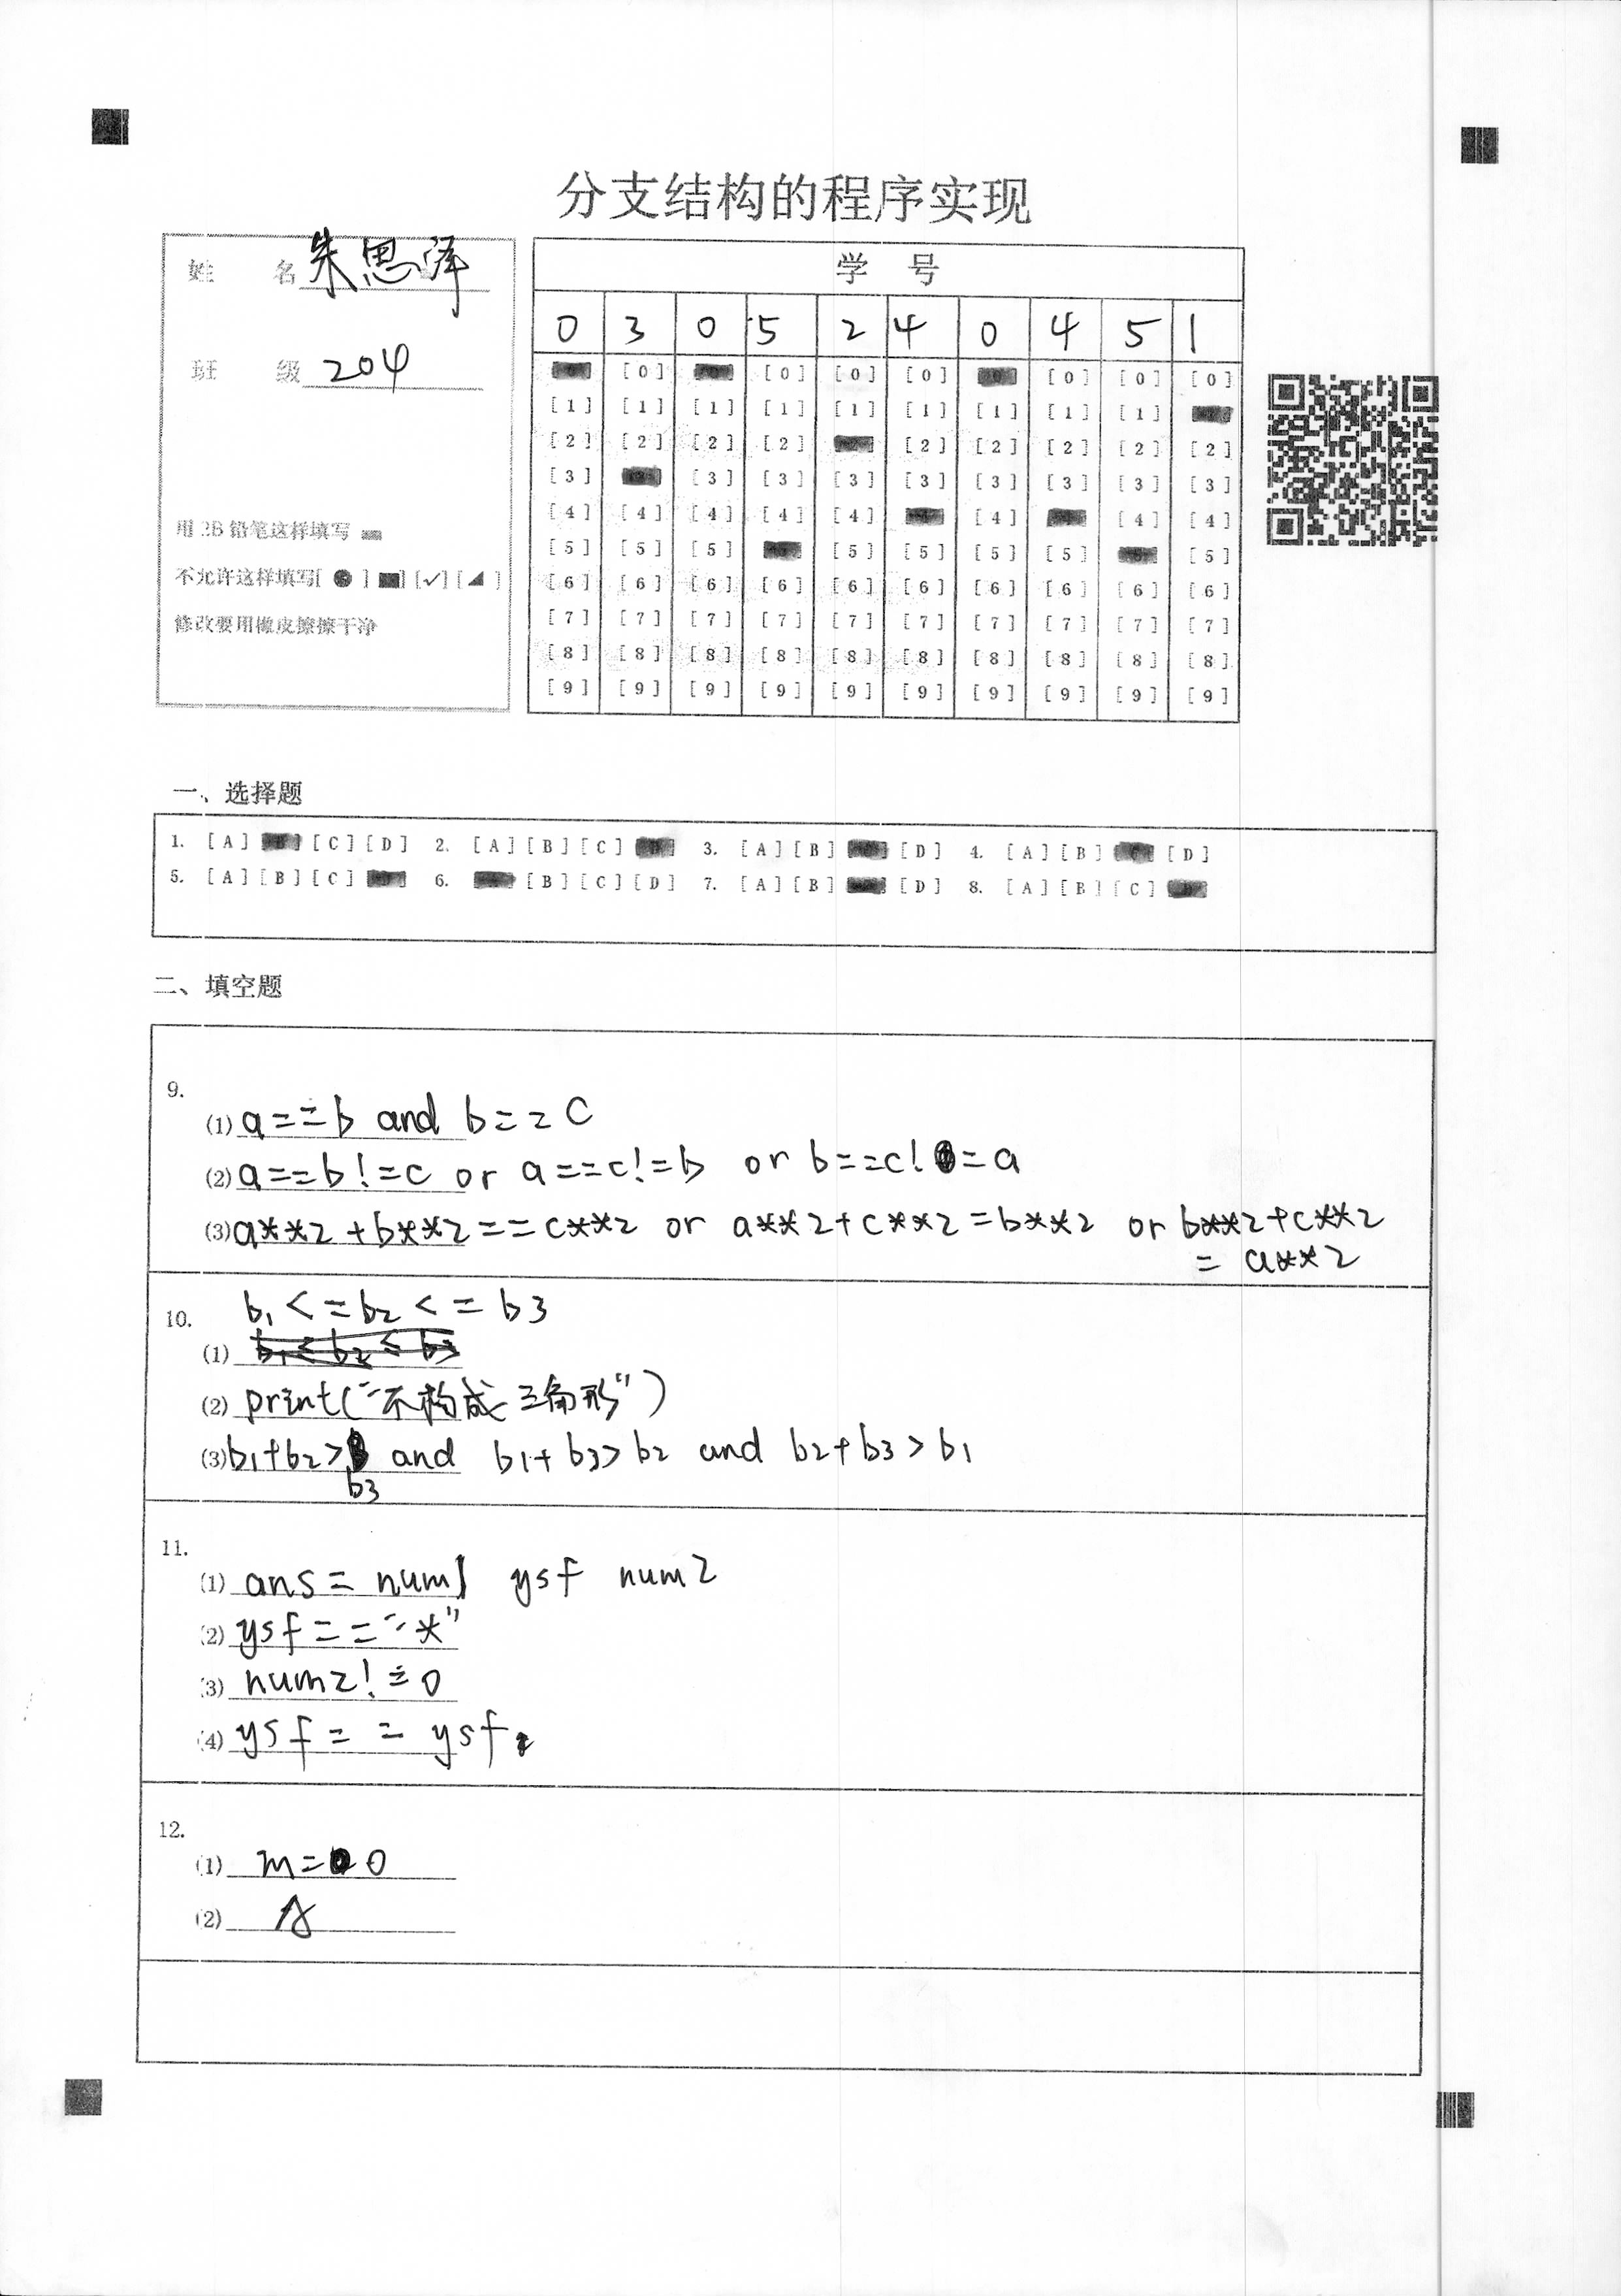 分支结构的程序实现
姓 名 朱思泽
班 级 204
用 2B 铅笔这样填写
不允许这样填写[ ● ] [■] [✓] [◢ ]
修改要用橡皮擦擦干净
学 号
0 3 0 5 2 4 0 4 5 1
[0] [0] [0] [0] [0] [0] [0]
[1] [1] [1] [1] [1] [1] [1] [1] [1]
[2] [2] [2] [2] [2] [2] [2] [2] [2]
[3] [3] [3] [3] [3] [3] [3] [3] [3]
[4] [4] [4] [4] [4] [4] [4] [4]
[5] [5] [5] [5] [5] [5] [5] [5]
[6] [6] [6] [6] [6] [6] [6] [6] [6] [6]
[7] [7] [7] [7] [7] [7] [7] [7] [7] [7]
[8] [8] [8] [8] [8] [8] [8] [8] [8] [8]
[9] [9] [9] [9] [9] [9] [9] [9] [9] [9]
一、选择题
1. [A] [C] [D] 2. [A] [B] [C] 3. [A] [B] [D] 4. [A] [B] [D]
5. [A] [B] [C] 6. [B] [C] [D] 7. [A] [B] [D] 8. [A] [B] [C]
二、填空题
9.
(1) a==b and b==c
(2) a==b!=c or a==c!=b or b==c!=a
(3) a**2+b**2==c**2 or a**2+c**2=b**2 or b**2+c**2
= a**2
10. b1<=b2<=b3
(1) b1≤b2≤b3
(2) print("不构成三角形")
(3) b1+b2> and b1+b3>b2 and b2+b3>b1
b3
11.
(1) ans=num1 ysf num2
(2) ysf=="*"
(3) num2!=0
(4) ysf==ysf
12.
(1) m=0
(2) A